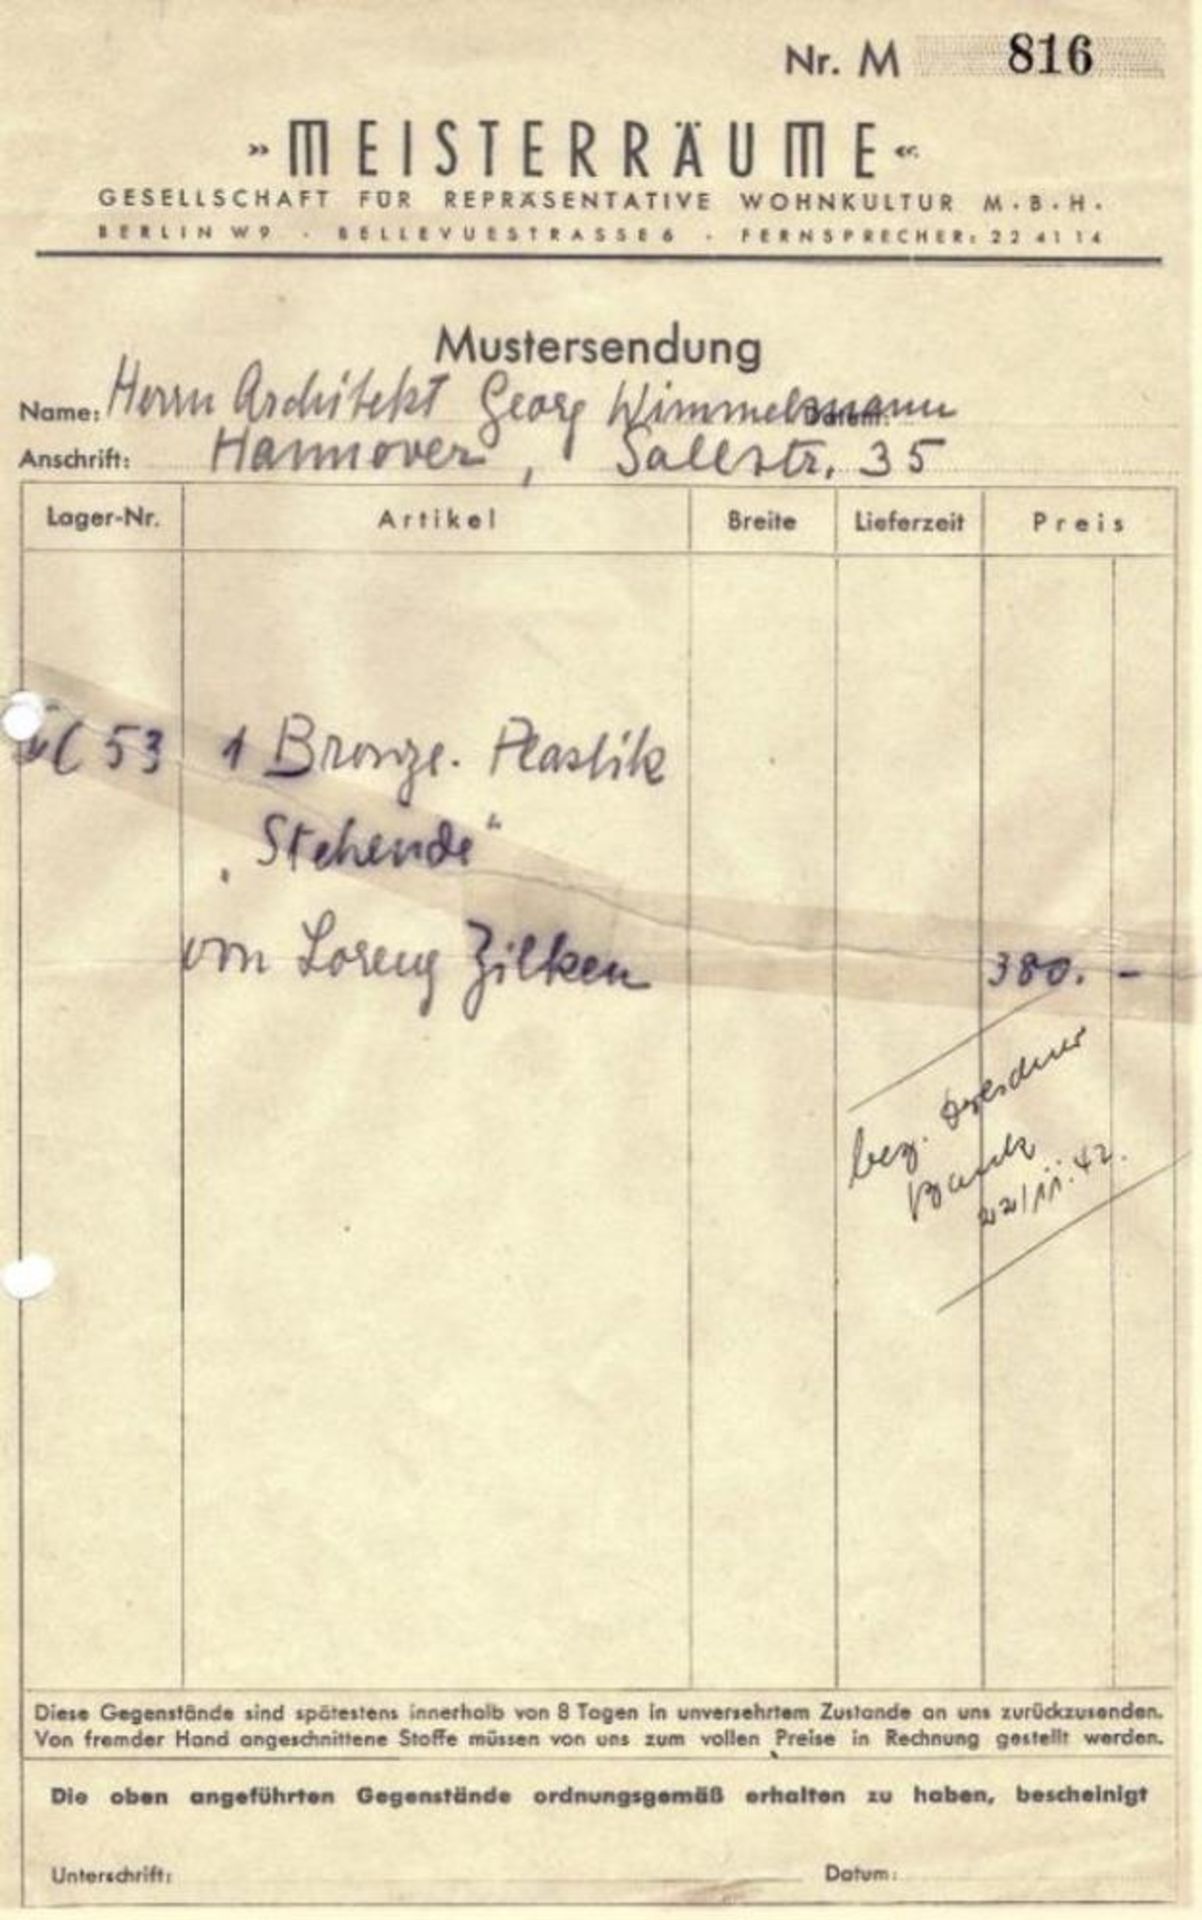 Nr. M 816
»MEISTERRÄUME«
GESELLSCHAFT FÜR REPRÄSENTATIVE WOHNKULTUR M.B.H.
BERLIN W9 . BELLEVUESTRASSE 6 . FERNSPRECHER: 22 41 14
Mustersendung
Name: Herrn Architekt Georg Wimmelmann Datum:
Anschrift: Hannover, Sallstr. 35
Lager-Nr. Artikel Breite Lieferzeit Preis
53 1 Bronze. Plastik
„Stehende“
von Lorenz Zilken 380. -
bez. Dresdner
Bank
22/11.42.
Diese Gegenstände sind spätestens innerhalb von 8 Tagen in unversehrtem Zustande an uns zurückzusenden.
Von fremder Hand angeschnittene Stoffe müssen von uns zum vollen Preise in Rechnung gestellt werden.
Die oben angeführten Gegenstände ordnungsgemäß erhalten zu haben, bescheinigt
Unterschrift: Datum: